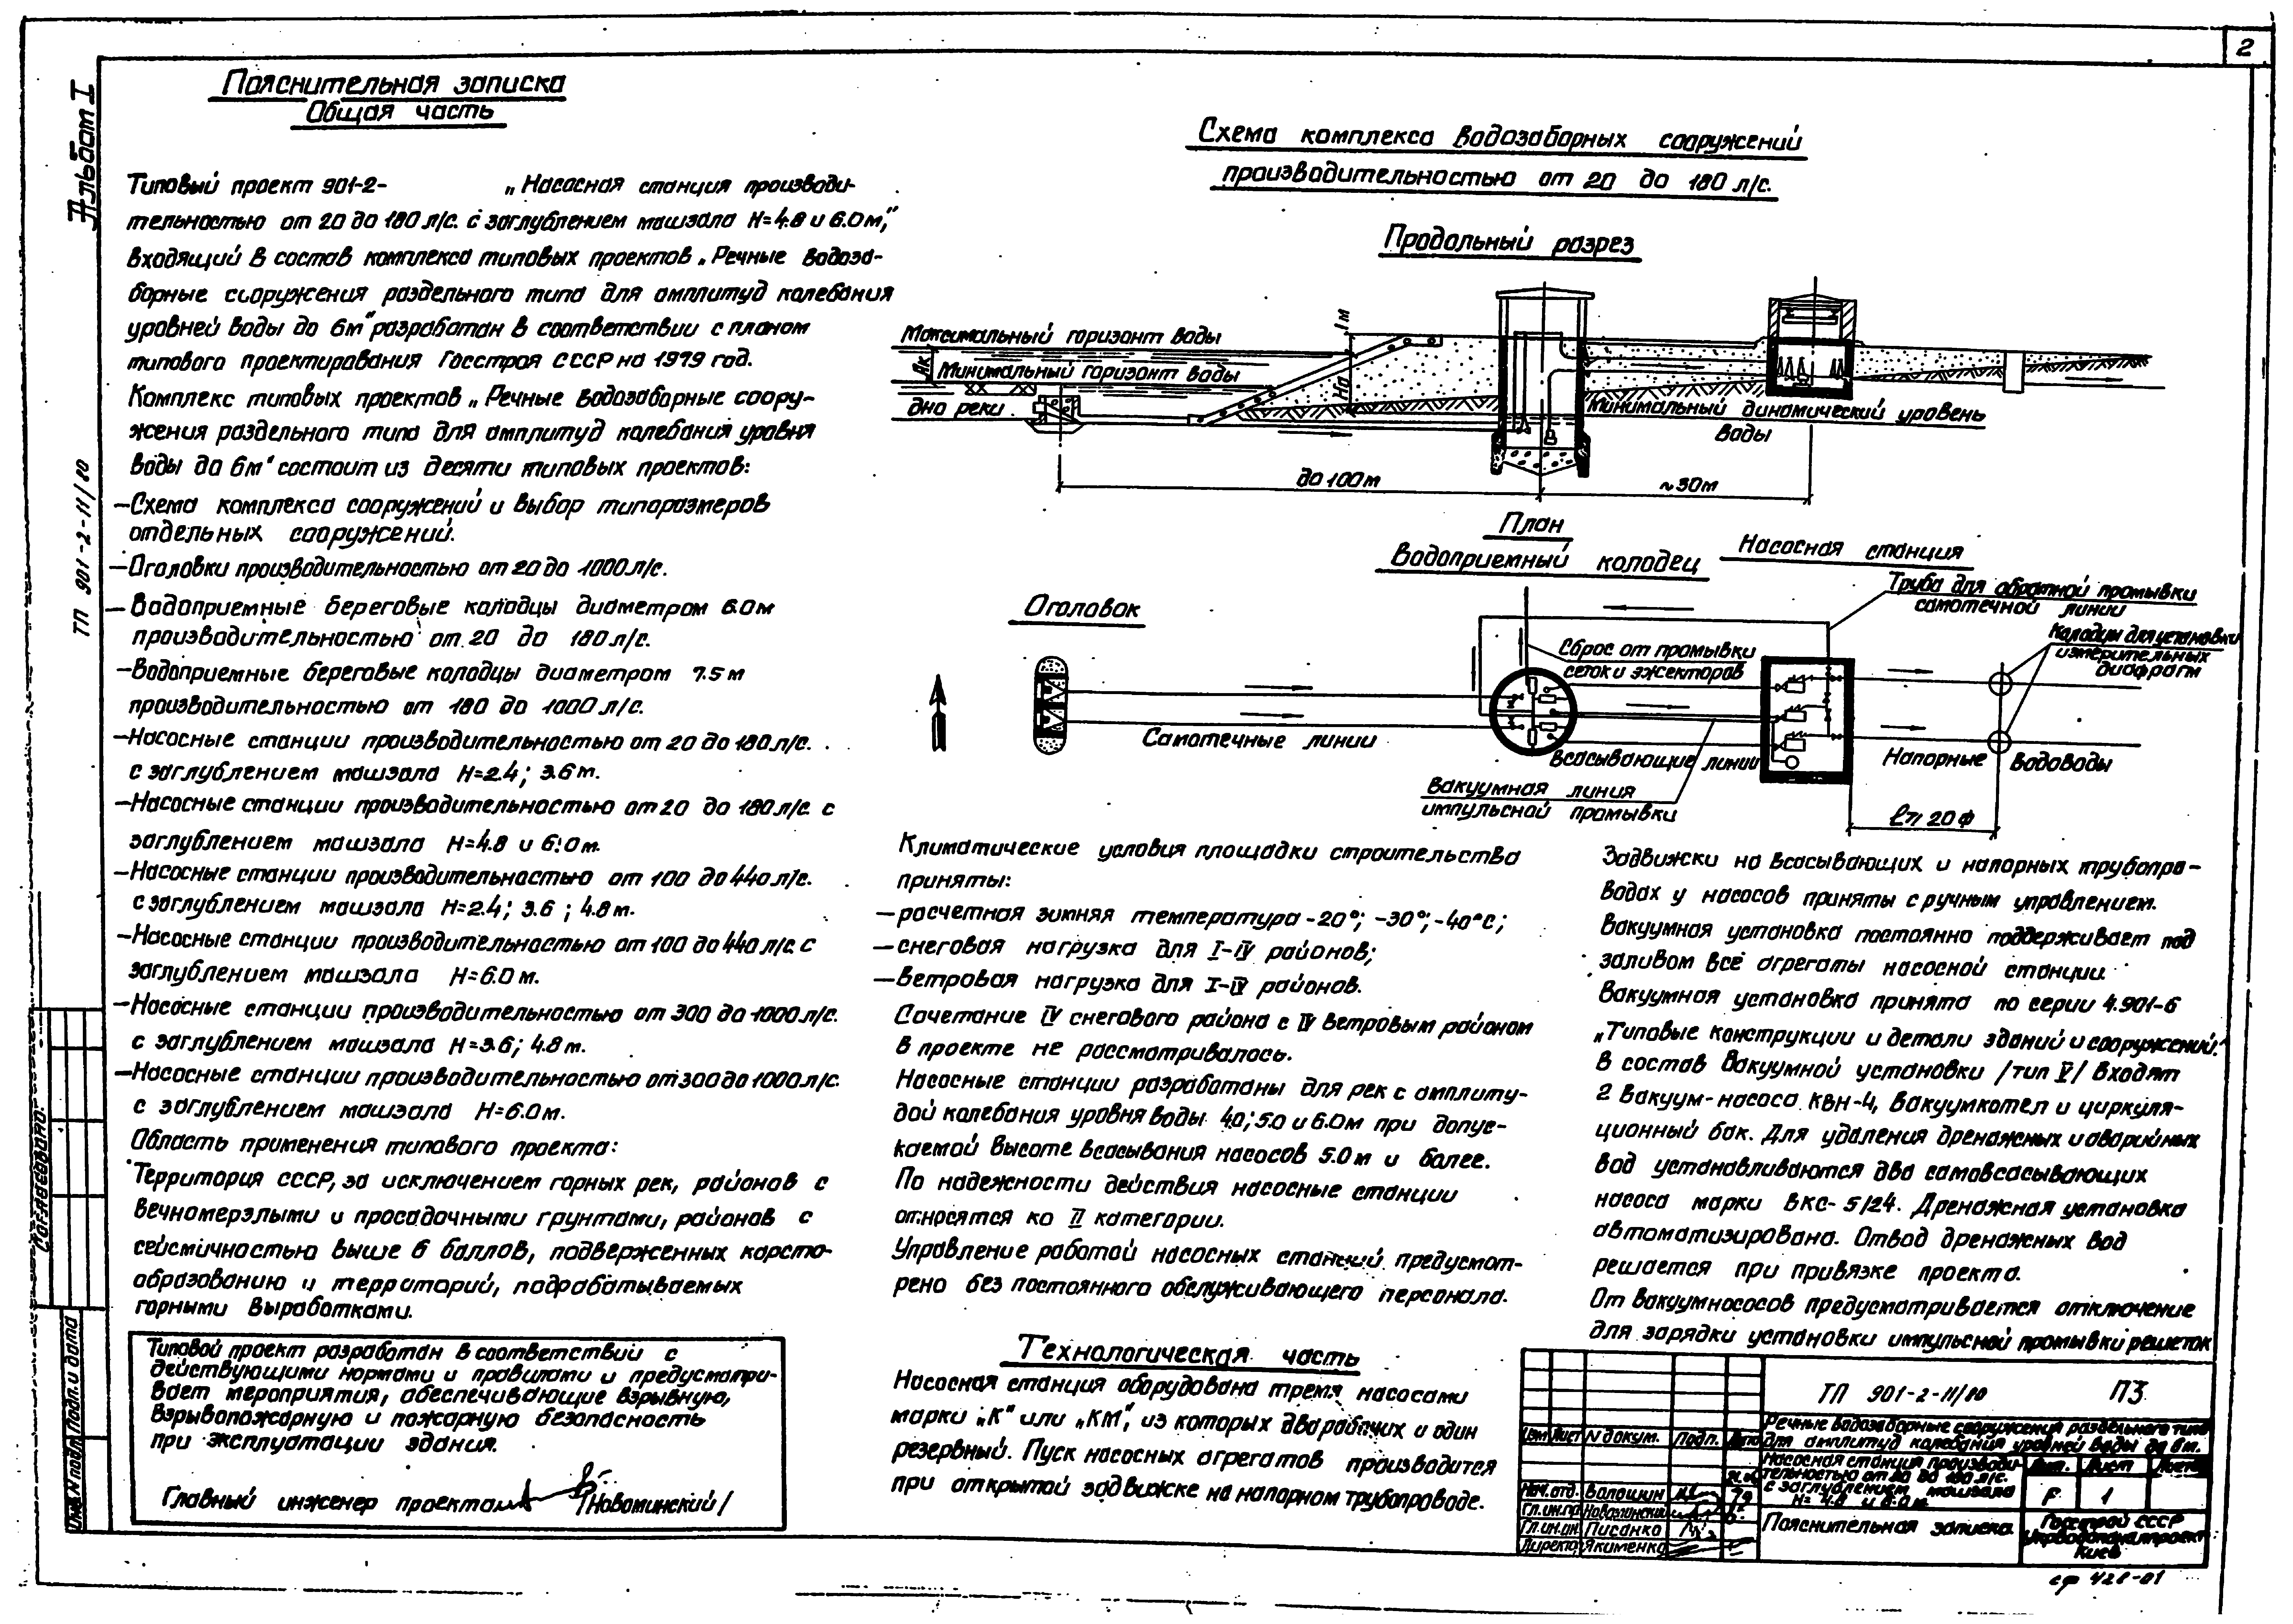 2
Альбом I
ТП 901-2-11/80
Пояснительная записка
Общая часть
Типовый проект 901-2- „Насосная станция производи-
тельностью от 20 до 180 л/с. с заглублением машзала Н=4.8 и 6.0м,"
входящий в состав комплекса типовых проектов „Речные водоза-
борные сооружения раздельного типа для амплитуд колебания
уровней воды до 6м" разработан в соответствии с планом
типового проектирования Госстроя СССР на 1979 год.
Комплекс типовых проектов „Речные водозаборные соору-
жения раздельного типа для амплитуд колебания уровня
воды до 6м" состоит из десяти типовых проектов:
—Схема комплекса сооружений и выбор типоразмеров
отдельных сооружений.
—Оголовки производительностью от 20 до 1000 л/с.
—Водоприемные береговые колодцы диаметром 6.0м
производительностью от 20 до 180 л/с.
—Водоприемные береговые колодцы диаметром 7.5м
производительностью от 180 до 1000 л/с.
—Насосные станции производительностью от 20 до 180 л/с.
с заглублением машзала Н=2.4; 3.6м.
—Насосные станции производительностью от 20 до 180 л/с. с
заглублением машзала Н=4.8 и 6.0м.
—Насосные станции производительностью от 100 до 440 л/с.
с заглублением машзала Н=2.4; 3.6 ; 4.8м.
—Насосные станции производительностью от 100 до 440 л/с. с
заглублением машзала Н=6.0м.
—Насосные станции производительностью от 300 до 1000 л/с.
с заглублением машзала Н=3.6; 4.8м.
—Насосные станции производительностью от 300 до 1000 л/с.
с заглублением машзала Н=6.0м.
Область применения типового проекта:
Территория СССР, за исключением горных рек, районов с
вечномерзлыми и просадочными грунтами, районов с
сейсмичностью выше 6 баллов, подверженных карсто-
образованию и территорий, подрабатываемых
горными выработками.
Типовой проект разработан в соответствии с
действующими нормами и правилами и предусматри-
вает мероприятия, обеспечивающие взрывную,
взрывопожарную и пожарную безопасность
при эксплуатации здания.
Главный инженер проекта /Новоминский/
Схема комплекса водозаборных сооружений
производительностью от 20 до 180 л/с.
Продольный разрез
Максимальный горизонт воды
Минимальный горизонт воды
дно реки
Ак
1м
Но
Минимальный динамический уровень
воды
до 100м
~30м
План
Водоприемный колодец
Насосная станция
Оголовок
Труба для обратной промывки
самотечной линии
Колодцы для установки
измерительных
диафрагм
Сброс от промывки
сеток и эжекторов
Самотечные линии
Всасывающие линии
Напорные водоводы
Вакуумная линия
импульсной промывки
ℓ≥20ф
Климатические условия площадки строительства
приняты:
—расчетная зимняя температура -20°; -30°; -40°С;
—снеговая нагрузка для I-IV районов;
—ветровая нагрузка для I-IV районов.
Сочетание IV снегового района с IV ветровым районом
в проекте не рассматривалось.
Насосные станции разработаны для рек с амплиту-
дой колебания уровня воды 4.0; 5.0 и 6.0м при допус-
каемой высоте всасывания насосов 5.0м и более.
По надежности действия насосные станции
относятся ко II категории.
Управление работой насосных станций предусмот-
рено без постоянного обслуживающего персонала.
Технологическая часть
Насосная станция оборудована тремя насосами
марки „К" или „КМ", из которых два рабочих и один
резервный. Пуск насосных агрегатов производится
при открытой задвижке на напорном трубопроводе.
Задвижки на всасывающих и напорных трубопро-
водах у насосов приняты с ручным управлением.
Вакуумная установка постоянно поддерживает под
заливом все агрегаты насосной станции.
Вакуумная установка принята по серии 4.901-6
„Типовые конструкции и детали зданий и сооружений."
В состав вакуумной установки /тип V/ входят
2 вакуум-насоса КВН-4, вакуумкотел и циркуля-
ционный бак. Для удаления дренажных и аварийных
вод устанавливаются два самовсасывающих
насоса марки ВКС-5/24. Дренажная установка
автоматизирована. Отвод дренажных вод
решается при привязке проекта.
От вакуумнососов предусматривается отключение
для зарядки установки импульсной промывки решеток
Согласовано:
Инв.N подл. Подп. и дата
ТП 901-2-11/80 ПЗ
Речные водозаборные сооружения раздельного типа
для амплитуд колебания уровней воды до 6м.
Изм Лист N докум. Подп. Дата
Насосная станция производи-
тельностью от 20 до 180 л/с.
с заглублением машзала
Н= 4.8 и 6.0м
Лит. Лист Листов
Р 1
Нач. отд. Волошин
Гл.ин.пр. Новоминский
Гл.ин.ин. Писанко
Директор Якименко
Пояснительная записка
Госстрой СССР
Укрводоканалпроект
Киев
сф 421-01